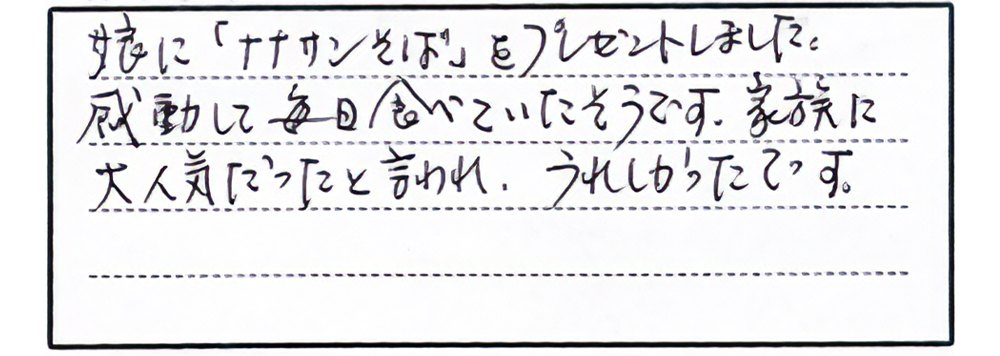 娘に「ナナサンそば」をプレゼントしました。
感動して毎日食べていたそうです。家族に
大人気だったと言われ、うれしかったです。